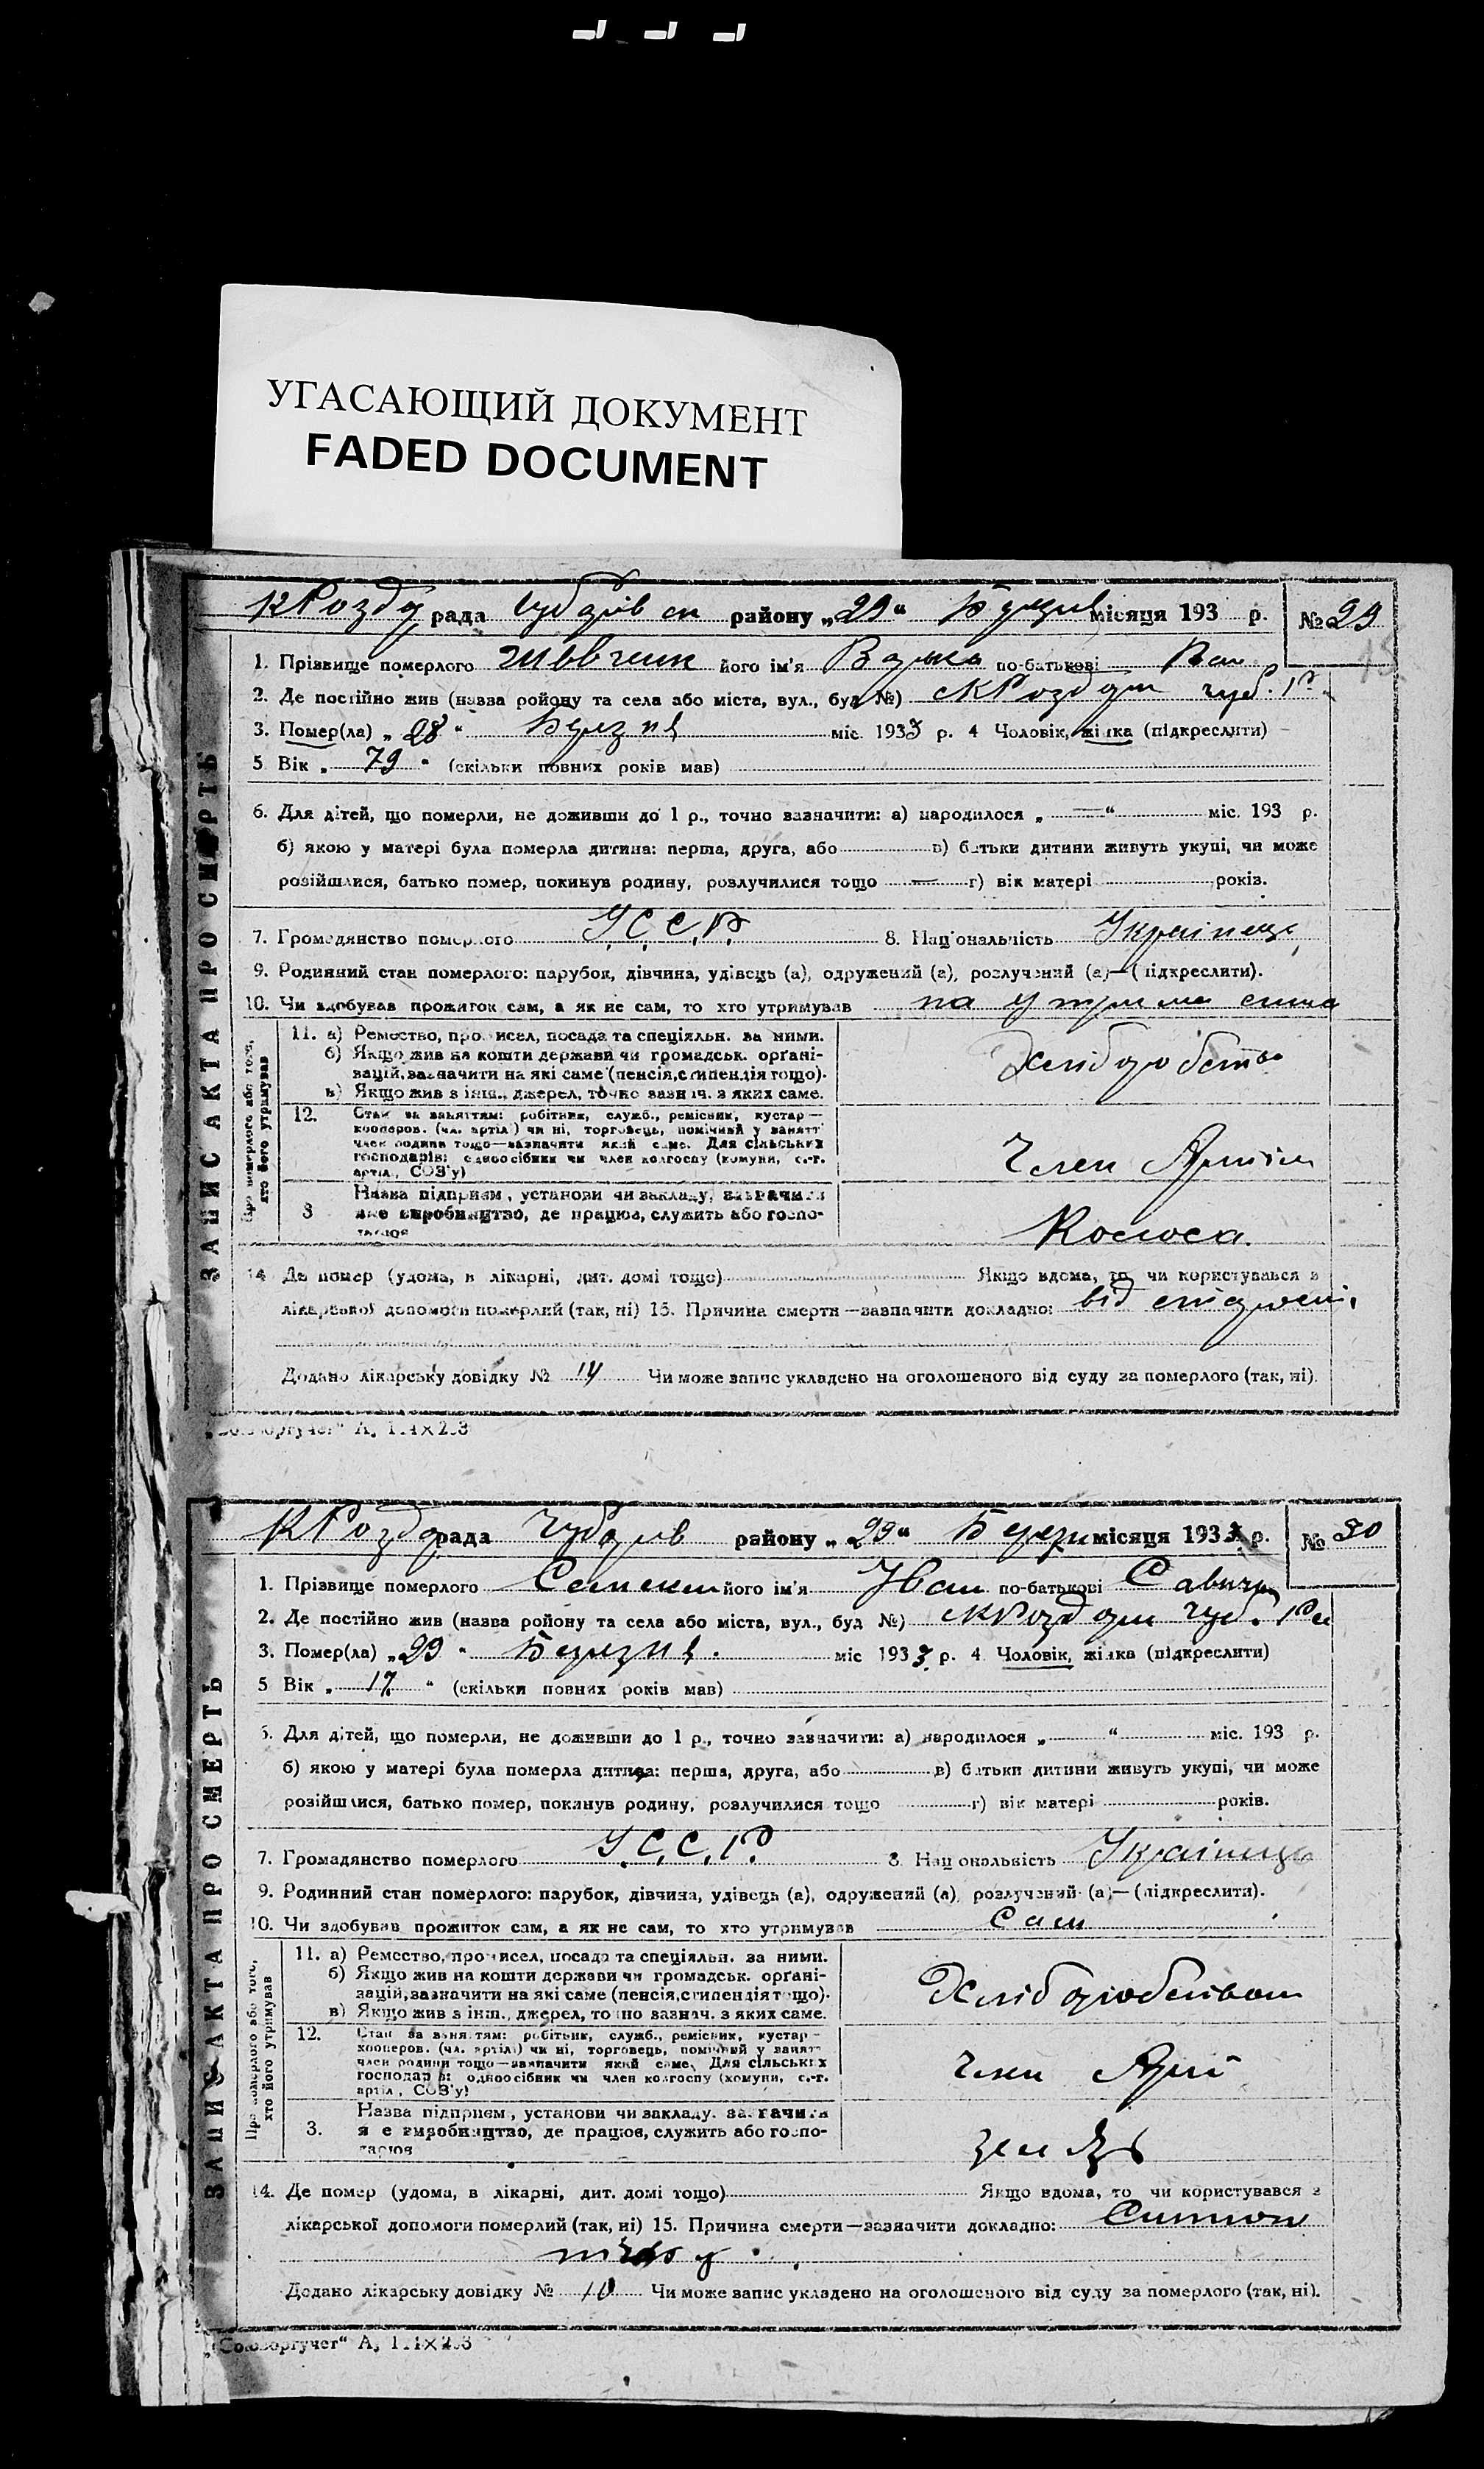 УГАСАЮЩИЙ ДОКУМЕНТ
FADED DOCUMENT
КРозд рада району „29“ місяця 193 р. № 29
1. Прізвище померлого його ім'я по-батькові
2. Де постійно жив (назва ройону та села або міста, вул., буд №)
3. Помер(ла) „28“ Березня міс. 1933 р. 4 Чоловік, жінка (підкреслити)
5 Вік „79“ (скільки повних років мав)
6. Для дітей, що померли, не доживши до 1 р., точно зазначити: а) народилося „—“ міс. 193 р.
б) якою у матері була померла дитина: перша, друга, або в) батьки дитини живуть укупі, чи може
розійшлися, батько помер, покинув родину, розлучилися тощо — г) вік матері років.
7. Громадянство померлого У.С.С.Р. 8. Національність Українець
9. Родинний стан померлого: парубок, дівчина, удівець (а), одружений (а), розлучений (а)—(підкреслити).
10. Чи здобував прожиток сам, а як не сам, то хто утримував на утрим сина
ЗАПИС АКТА ПРО СМЕРТЬ
Про померлого або того,
хто його утримував
11. а) Ремество, промисел, посада та спеціяльн. за ними.
б) Якщо жив на кошти держави чи громадськ. орґані-
зацій, зазначити на які саме (пенсія, стипендія тощо).
в) Якщо жив з інш., джерел, точно зазнач. з яких саме.
Хліборобство
12. Стан за заняттям: робітник, служб., ремісник, кустар—
кооперов. (чл. артілі) чи ні, торговець, помічний у занятт
член родини тощо—зазначити який саме. Для сільських
господарів: одноосібник чи член колгоспу (комуни, с.-г.
артіл, СОЗ'у)
Член Артіли
3 Назва підприєм, установи чи закладу, зазначити
яке виробництво, де працює, служить або госпо-
дарює
14 Де помер (удома, в лікарні, дит. домі тощо) Якщо вдома, то чи користувався з
лікарської допомоги померлий (так, ні) 15. Причина смерти—зазначити докладно: від
Додано лікарську довідку № 14 Чи може запис укладено на оголошеного від суду за померлого (так, ні).
„Союзоргучет“ А,
КРозд рада Чубарів району „29“ Березн місяця 1933 р. № 30
1. Прізвище померлого його ім'я Іван по-батькові Савич
2. Де постійно жив (назва ройону та села або міста, вул., буд №)
3. Помер(ла) „29“ Березня міс 1933 р. 4 Чоловік, жінка (підкреслити)
5 Вік „17“ (скільки повних років мав)
6. Для дітей, що померли, не доживши до 1 р., точно зазначити: а) народилося „ “ міс. 193 р.
б) якою у матері була померла дитина: перша, друга, або в) батьки дитини живуть укупі, чи може
розійшлися, батько помер, покинув родину, розлучилися тощо г) вік матері років.
7. Громадянство померлого У.С.С.Р. 8 Національність Українець
9. Родинний стан померлого: парубок, дівчина, удівець (а), одружений (а), розлучений (а)—(підкреслити).
10. Чи здобував прожиток сам, а як не сам, то хто утримував Сам
ЗАПИС АКТА ПРО СМЕРТЬ
Про померлого або того,
хто його утримував
11. а) Ремество, промисел, посада та спеціяльн. за ними.
б) Якщо жив на кошти держави чи громадськ. орґані-
зацій, зазначити на які саме (пенсія, стипендія тощо).
в) Якщо жив з інш., джерел, точно зазнач. з яких саме.
Хліборобством
12. Стан за заняттям: робітник, служб., ремісник, кустар—
кооперов. (чл. артілі) чи ні, торговець, помічний у занятт
член родини тощо—зазначити який саме. Для сільських
господарів: одноосібник чи член колгоспу (комуни, с.-г.
артіл, СОЗ'у)
Член
3. Назва підприєм, установи чи закладу. зазначити
яке виробництво, де працює, служить або госпо-
дарює
14. Де помер (удома, в лікарні, дит. домі тощо) Якщо вдома, то чи користувався з
лікарської допомоги померлий (так, ні) 15. Причина смерти—зазначити докладно:
Додано лікарську довідку № 10 Чи може запис укладено на оголошеного від суду за померлого (так, ні).
„Союзоргучет“ А,